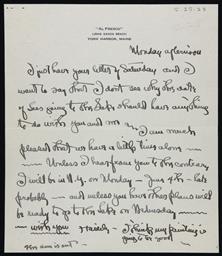 5-25-23
"AL FRESCO"
LONG SANDS BEACH
YORK HARBOR, MAINE
Monday afternoon
I just have your letter of Saturday and I
want to say that I don't see why this date
of going to the Lake should have anything
to do with you and me — I am much
pleased that we have a little time alone —
Unless I hear from you to the contrary
I will be in N.Y. on Monday — June 4th - late
probably — and unless you have other plans will
be ready to go to the Lake on Wednesday —
with you I think my painting is
going to be good